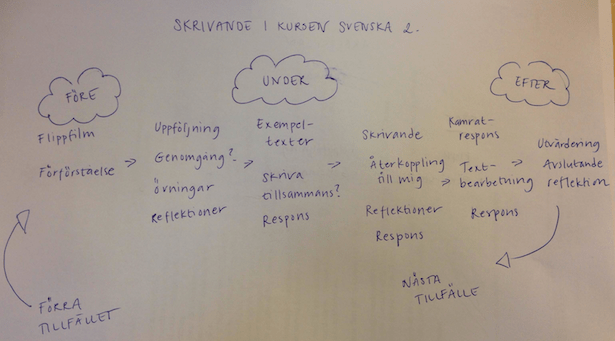 SKRIVANDE I KURSEN SVENSKA 2.
FÖRE
Flippfilm
Förförståelse
UNDER
Uppföljning
Genomgång?
övningar
Reflektioner
Exempel-
texter
Skriva
tillsammans?
Respons
Skrivande
Återkoppling
till mig
Reflektioner
Respons
Kamrat-
respons
Text-
bearbetning
Respons
EFTER
Utvärdering
Avslutande
reflektion
FÖRRA
TILLFÄLLET
NÄSTA
TILLFÄLLE